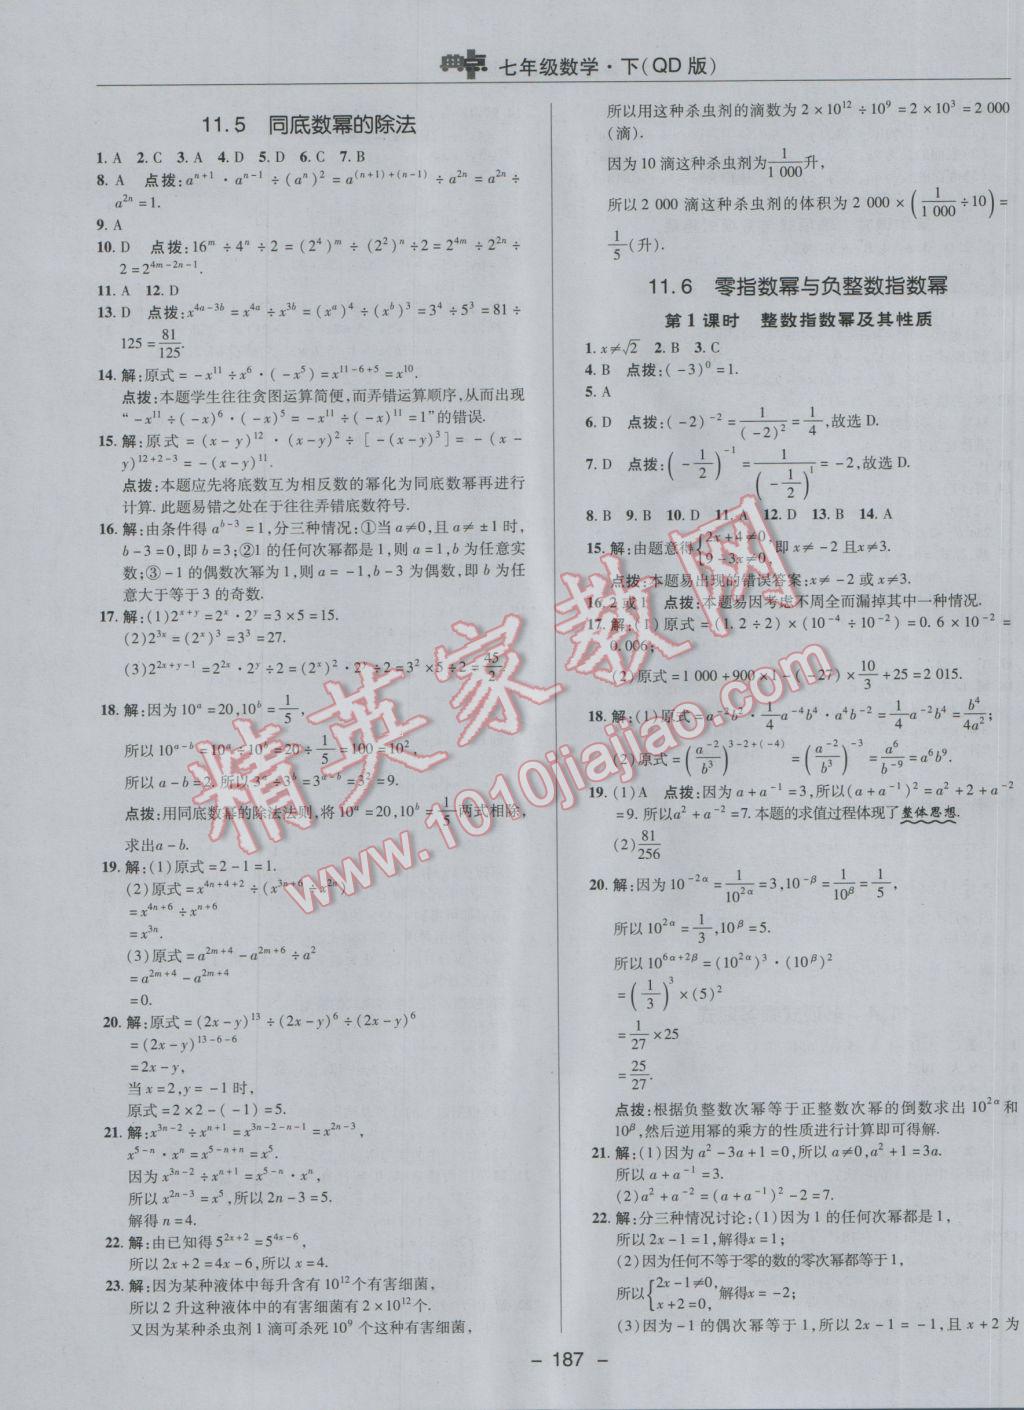 典点 七年级数学·下(QD版)
11.5 同底数幂的除法
1. A 2. C 3. A 4. D 5. D 6. C 7. B
8. A 点拨:aⁿ⁺¹·aⁿ⁻¹÷(aⁿ)²=a⁽ⁿ⁺¹⁾⁺⁽ⁿ⁻¹⁾÷a²ⁿ=a²ⁿ÷
a²ⁿ=1.
9. A
10. D 点拨:16^m÷4^n÷2=(2^4)^m÷(2^2)^n÷2=2^{4m}÷2^{2n}÷
2=2^{4m-2n-1}.
11. A 12. D
13. D 点拨:x^{4a-3b}=x^{4a}÷x^{3b}=(x^a)^4÷(x^b)^3=3^4÷5^3=81÷
125=81/125.
14. 解:原式=-x^{11}÷x^6·(-x^5)=x^{11-6+5}=x^{10}.
点拨:本题学生往往贪图运算简便,而弄错运算顺序,从而出现
“-x^{11}÷(-x)^6·(-x)^5=-x^{11}÷(-x)^{11}=1”的错误.
15. 解:原式=(x-y)^{12}·(x-y)^2÷[-(x-y)^3]=-(x-
y)^{12+2-3}=-(x-y)^{11}.
点拨:本题应先将底数互为相反数的幂化为同底数幂再进行
计算.此题易错之处在于往往弄错底数符号.
16. 解:由条件得a^{b-3}=1,分三种情况:①当a≠0,且a≠±1时,
b-3=0,即b=3;②1的任何次幂都是1,则a=1,b为任意实
数;③-1的偶数次幂为1,则a=-1,b-3为偶数,即b为任
意大于等于3的奇数.
17. 解:(1)2^{x+y}=2^x·2^y=3×5=15.
(2)2^{3x}=(2^x)^3=3^3=27.
(3)2^{2x+y-1}=2^{2x}·2^y÷2=(2^x)^2·2^y÷2=3^2×5÷2=45/2.
18. 解:因为10^a=20,10^b=1/5,
所以10^{a-b}=10^a÷10^b=20÷1/5=100=10^2,
所以a-b=2.所以3^a÷3^b=3^{a-b}=3^2=9.
点拨:用同底数幂的除法法则,将10^a=20,10^b=1/5两式相除,
求出a-b.
19. 解:(1)原式=2-1=1.
(2)原式=x^{4n+4+2}÷(x^{3n+6}÷x^{2n})
=x^{4n+6}÷x^{n+6}
=x^{3n}.
(3)原式=a^{2m+4}-a^{2m+6}÷a^2
=a^{2m+4}-a^{2m+4}
=0.
20. 解:原式=(2x-y)^{13}÷(2x-y)^6÷(2x-y)^6
=(2x-y)^{13-6-6}
=2x-y,
当x=2,y=-1时,
原式=2×2-(-1)=5.
21. 解:x^{3n-2}÷x^{n+1}=x^{3n-2-n-1}=x^{2n-3},
x^{5-n}·x^n=x^{5-n+n}=x^5.
因为x^{3n-2}÷x^{n+1}=x^{5-n}·x^n,
所以x^{2n-3}=x^5,所以2n-3=5.
解得n=4.
22. 解:由已知得5^{2x+2}=5^{4x-6},
所以2x+2=4x-6,所以x=4.
23. 解:因为某种液体中每升含有10^{12}个有害细菌,
所以2升这种液体中的有害细菌有2×10^{12}个.
又因为某种杀虫剂1滴可杀死10^9个这种有害细菌,
所以用这种杀虫剂的滴数为2×10^{12}÷10^9=2×10^3=2 000
(滴).
因为10滴这种杀虫剂为1/1 000升,
所以2 000滴这种杀虫剂的体积为2 000×(1/1 000÷10)=
1/5(升).
11.6 零指数幂与负整数指数幂
第1课时 整数指数幂及其性质
1. x≠√2 2. B 3. C
4. B 点拨:(-3)^0=1.
5. A
6. D 点拨:(-2)^{-2}=1/(-2)^2=1/4,故选D.
7. D 点拨:(-1/2)^{-1}=1/(-1/2)^1=-2,故选D.
8. B 9. B 10. D 11. A 12. D 13. B 14. A
15. 解:由题意得{2x+4≠0, 9-3x≠0,即x≠-2且x≠3.
点拨:本题易出现的错误答案:x≠-2或x≠3.
16. 2或1 点拨:本题易因考虑不周全而漏掉其中一种情况.
17. 解:(1)原式=(1.2÷2)×(10^{-4}÷10^{-2})=0.6×10^{-2}=
0.006;
(2)原式=1 000+900×1-(-27)×10/3+25=2 015.
18. 解:(1)原式=a^{-2}b^2·1/4a^{-4}b^4·a^4b^{-2}=1/4a^{-2}b^4=b^4/4a^2;
(2)原式=(a^{-2}/b^3)^{3-2+(-4)}=(a^{-2}/b^3)^{-3}=a^6/b^{-9}=a^6b^9.
19. (1)A 点拨:因为a+a^{-1}=3,所以(a+a^{-1})^2=a^2+2+a^{-2}
=9.所以a^2+a^{-2}=7.本题的求值过程体现了整体思想.
(2)81/256
20. 解:因为10^{-2α}=1/10^{2α}=3,10^{-β}=1/10^β=1/5,
所以10^{2α}=1/3,10^β=5.
所以10^{6α+2β}=(10^{2α})^3·(10^β)^2
=(1/3)^3×(5)^2
=1/27×25
=25/27.
点拨:根据负整数次幂等于正整数次幂的倒数求出10^{2α}和
10^β,然后逆用幂的乘方的性质进行计算即可得解.
21. 解:(1)因为a^2-3a+1=0,所以a≠0,a^2+1=3a.
所以a+a^{-1}=3.
(2)a^2+a^{-2}=(a+a^{-1})^2-2=7.
22. 解:分三种情况讨论:(1)因为1的任何次幂都是1,
所以2x-1=1,解得x=1;
(2)因为任何不等于零的数的零次幂都等于1,
所以{2x-1≠0, x+2=0,解得x=-2;
(3)因为-1的偶次幂等于1,所以2x-1=-1,且x+2为
- 187 -
精英家教网
www.1010jiajiao.com